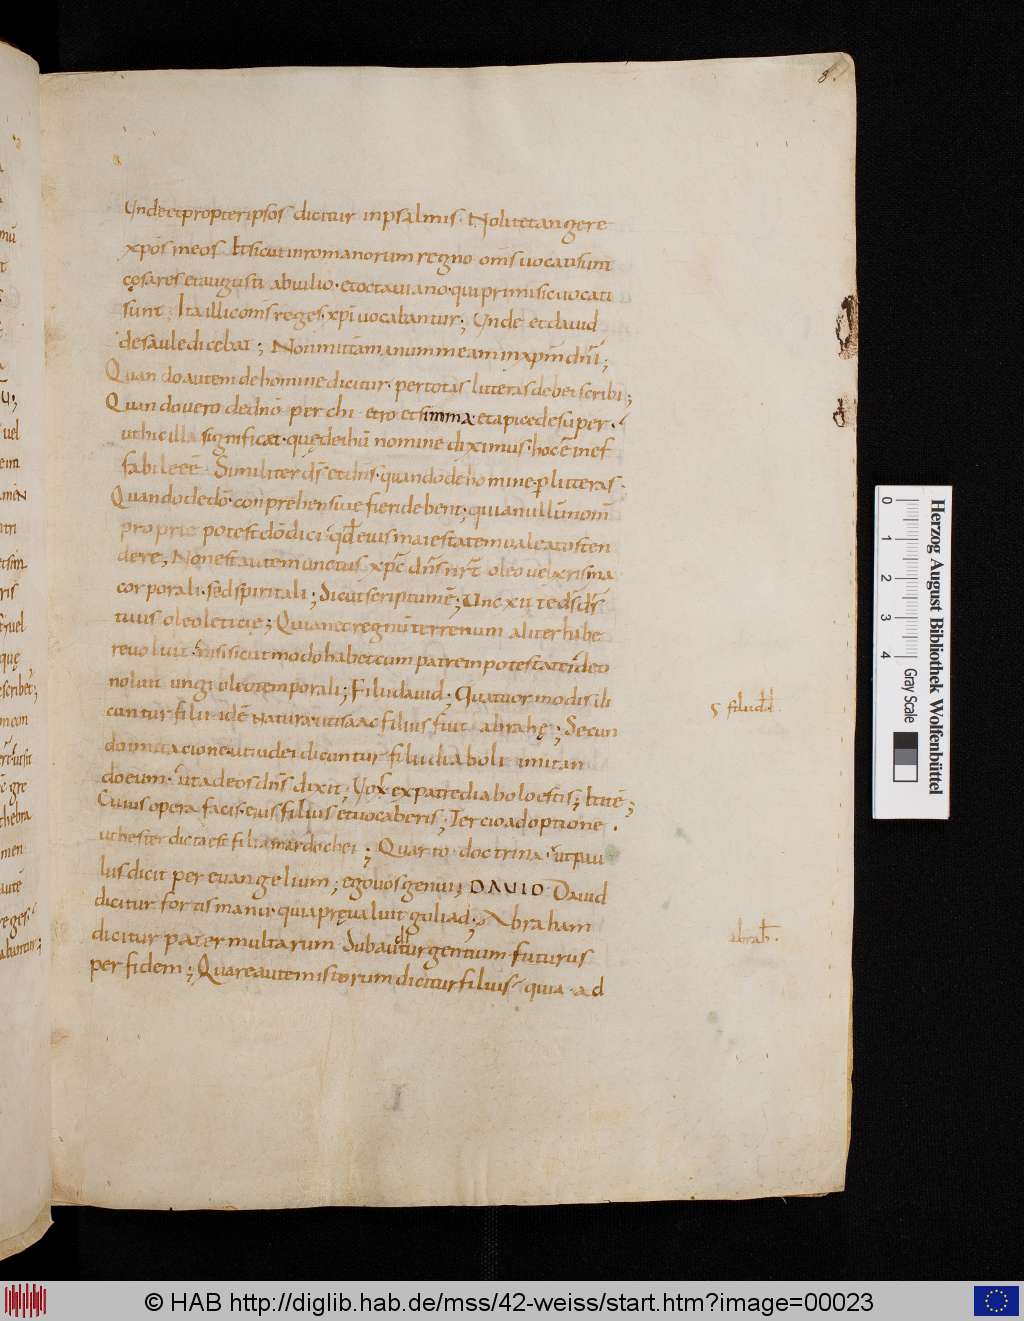 8.
Unde et propter ipsos dicitur in psalmis. Nolite tangere
xpos meos ł sicut in romanorum regno om̄s uocati sunt
cęsares et augusti ab iulio. et octauiano. qui primi sic uocati
sunt. Ita illic om̄s reges. xpi uocabantur; Unde et dauid
de saule dicebat; Non mittam manum meam in xpm̄ dnī;
Quando autem de homine dicitur. per totas litteras debet scribi;
Quando uero de dnō per chi et ro et simma et apice desuper.
ut hic illa significat. quę de ihū nomine diximus. hoc ē inef
fabile eē. Similiter ds̄ et dn̄s. quando de homine. ꝑ litteras.
Quando de dō. conprehensiue fieri debent; quia nullū nom̄
proprie potest dō dici. qđ eius maiestatem ualeat osten
dere, Non est autem unctus xpc̄ dn̄s nr̄ oleo uel xrisma
corporali. sed spiritali; Sicut scriptum ē; Unc xit te ds̄ ds̄
tuus oleo leticię; Quia nec regnū terrenum aliter habe
re uoluit. nisi sicut modo habet cum patrem potestatē ideo
noluit ungi oleo temporali; Filii dauid. Quatuor modis di
cuntur filii. idē natura. ut isaac filius fuit abrahę; Secun
do imitacione. ut iudei dicuntur filii diaboli imitan
do eum. ut ad eos dn̄s dixit; Uos ex patre diabolo estis; ł item;
Cuius opera facis. eius filius et uocaberis; Tercio adoptione.
ut hester dicta est filia mardochei; Quarto doctrina. ut pau
lus dicit per euangelium; ego uos genui; DAUID Dauid
dicitur fortis manu. quia pręualuit goliad; Abraham
dicitur pater multarum subauditur gentium futurus
per fidem; Quare autem istorum dicitur filius. quia ad
filii dd.
abrah̄.
Herzog August Bibliothek Wolfenbüttel
0 1 2 3 4
Gray Scale
© HAB http://diglib.hab.de/mss/42-weiss/start.htm?image=00023